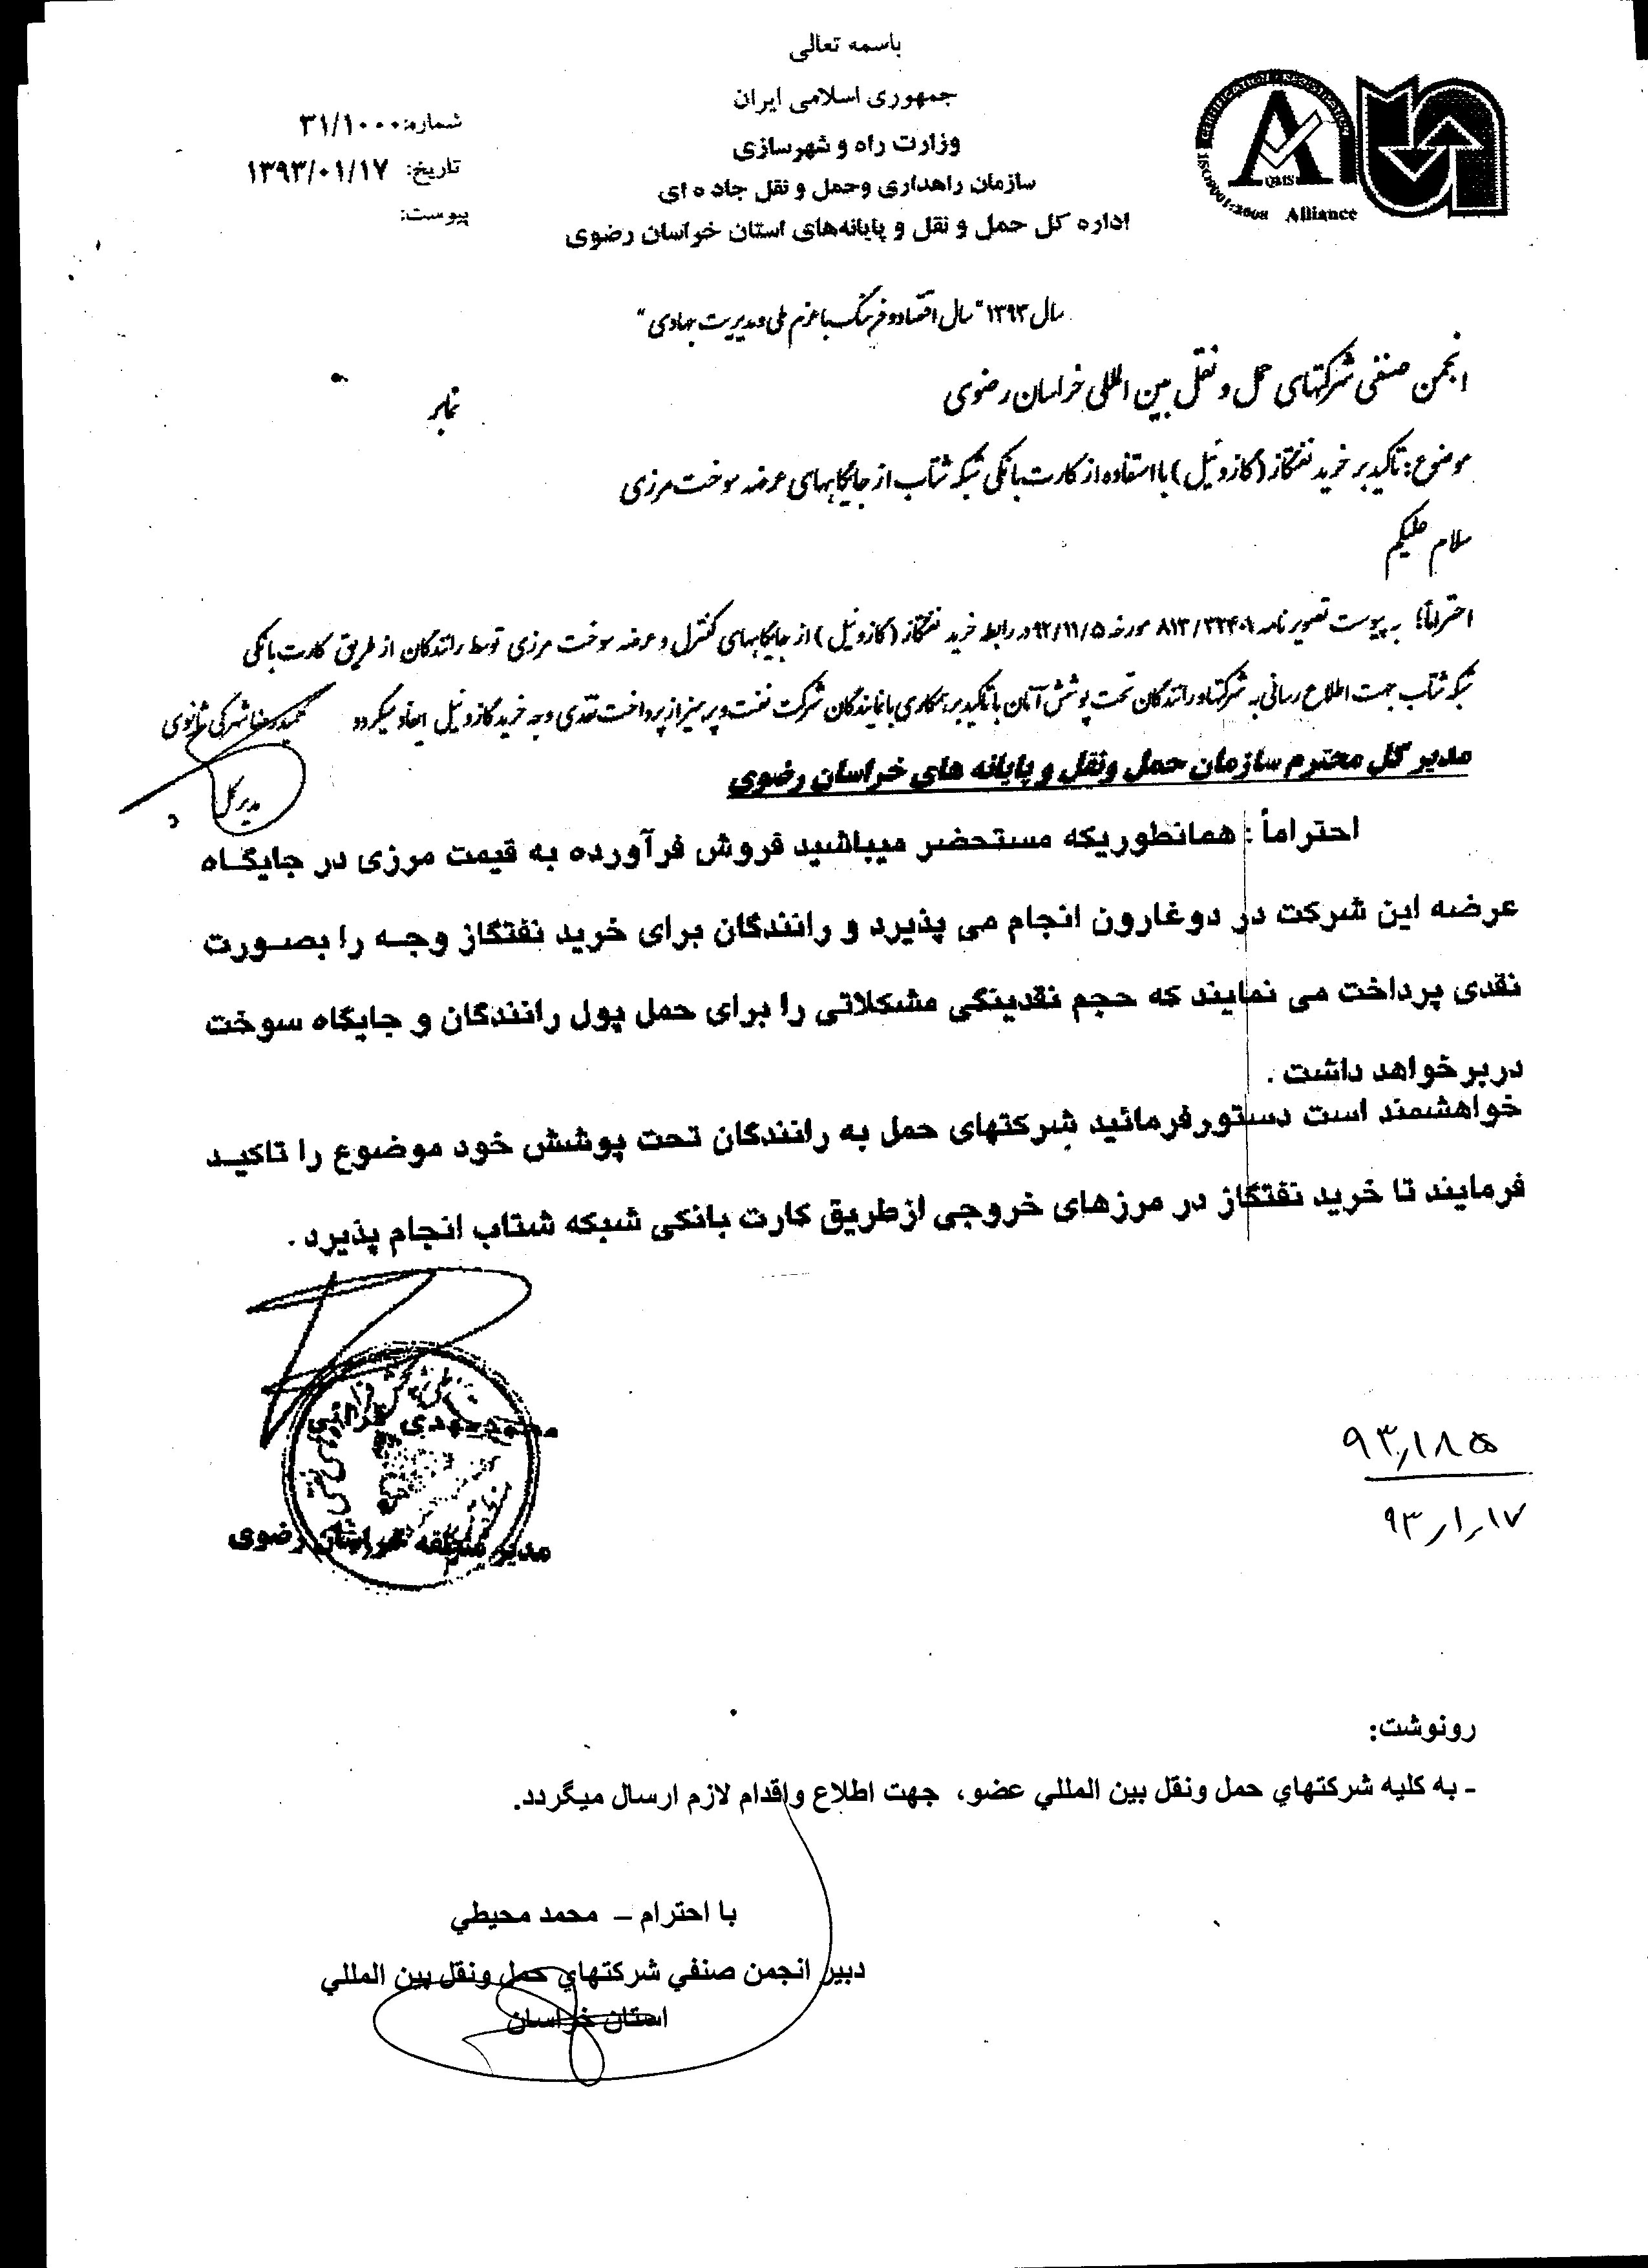 باسمه تعالی
جمهوری اسلامی ایران
وزارت راه و شهرسازی
سازمان راهداری وحمل و نقل جاده ای
اداره کل حمل و نقل و پایانه‌های استان خراسان رضوی
شماره: ۳۱/۱۰۰۰
تاریخ: ۱۳۹۳/۰۱/۱۷
پیوست:
ISO9001:2008 Alliance
QMS
سال ۱۳۹۳ "سال اقتصاد و فرهنگ با عزم ملی و مدیریت جهادی"
انجمن صنفی شرکتهای حمل و نقل بین المللی خراسان رضوی
نمابر
موضوع: تاکید بر خرید نفتگاز (گازوئیل) با استفاده از کارت بانکی شبکه شتاب از جایگاههای عرضه سوخت مرزی
سلام علیکم
احتراماً؛ به پیوست تصویر نامه ۸۱۳/۳۲۴۰۹ مورخه ۹۲/۱۱/۵ در رابطه خرید نفتگاز (گازوئیل) از جایگاههای کنترل و عرضه سوخت مرزی توسط رانندگان از طریق کارت بانکی
شبکه شتاب جهت اطلاع رسانی به شرکتها و رانندگان تحت پوشش آنان با تاکید بر همکاری با نمایندگان شرکت نفت و پرهیز از پرداخت نقدی وجه خرید گازوئیل ایفاد میگردد
مدیر کل
مدیر کل محترم سازمان حمل ونقل و پایانه های خراسان رضوی
احتراماً : همانطوریکه مستحضر میباشید فروش فرآورده به قیمت مرزی در جایگاه
عرضه این شرکت در دوغارون انجام می پذیرد و رانندگان برای خرید نفتگاز وجه را بصورت
نقدی پرداخت می نمایند که حجم نقدینگی مشکلاتی را برای حمل پول رانندگان و جایگاه سوخت
دربر خواهد داشت .
خواهشمند است دستورفرمائید شرکتهای حمل به رانندگان تحت پوشش خود موضوع را تاکید
فرمایند تا خرید نفتگاز در مرزهای خروجی ازطریق کارت بانکی شبکه شتاب انجام پذیرد .
مدیر منطقه خراسان رضوی
۹۳٫۱۸۵
۹۳٫۱٫۱۷
رونوشت:
- به کلیه شرکتهاي حمل ونقل بین المللي عضو، جهت اطلاع واقدام لازم ارسال میگردد.
با احترام – محمد محیطي
دبیر انجمن صنفي شرکتهاي حمل ونقل بین المللي
استان خراسان